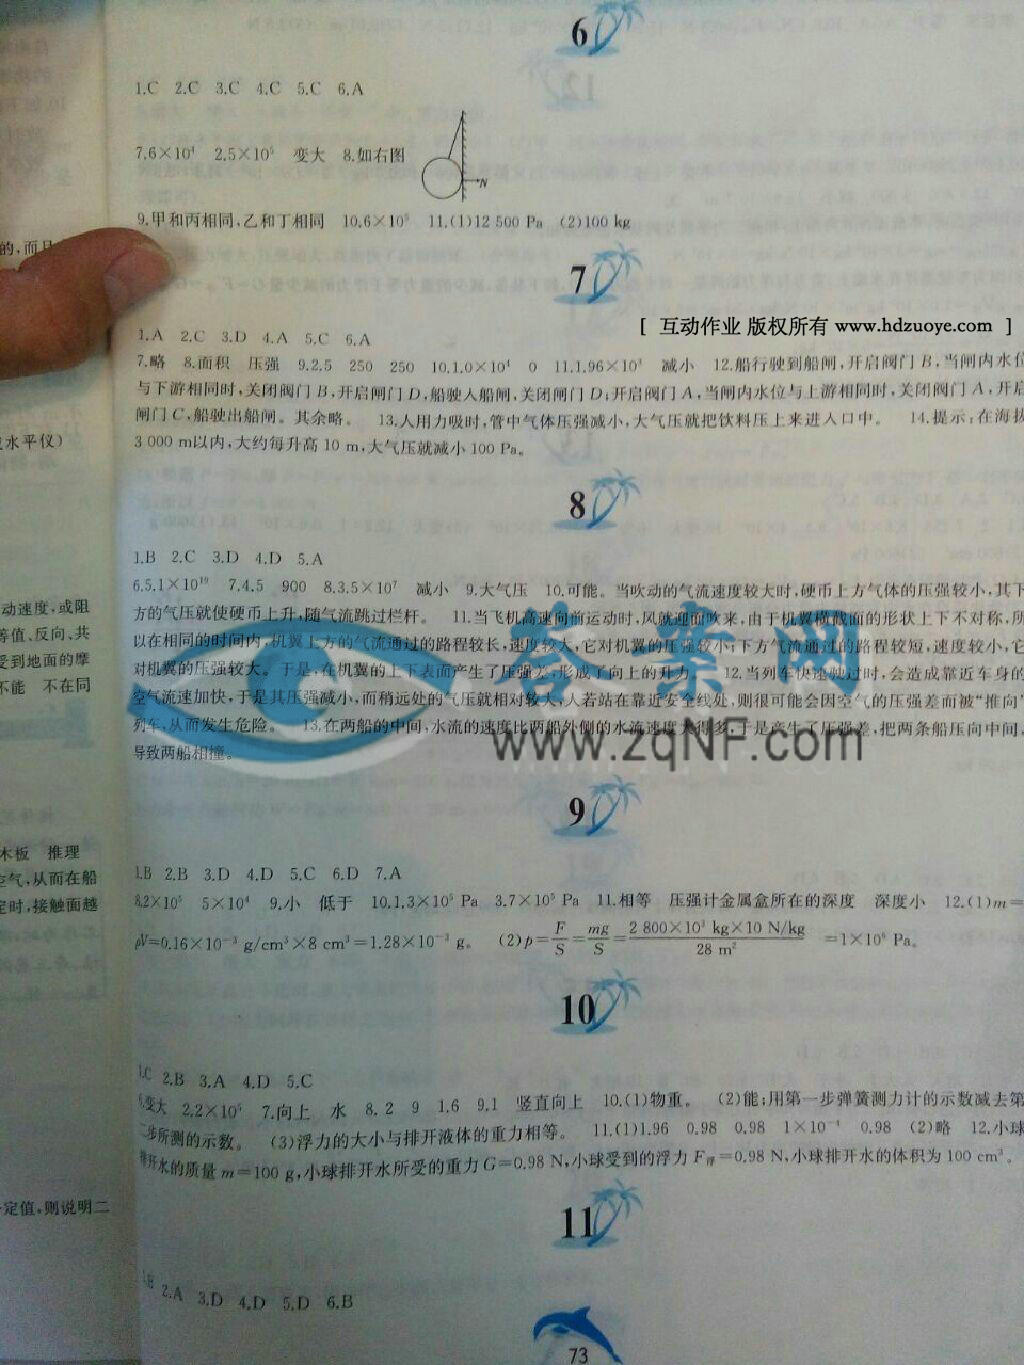 6
1.C 2.C 3.C 4.C 5.C 6.A
7.6×10⁴ 2.5×10⁵ 变大 8.如右图
N
9.甲和丙相同,乙和丁相同 10.6×10⁵ 11.(1)12 500 Pa (2)100 kg
的,而且
7
[ 互动作业 版权所有 www.hdzuoye.com ]
1.A 2.C 3.D 4.A 5.C 6.A
7.略 8.面积 压强 9.2.5 250 250 10.1.0×10⁴ 0 11.1.96×10³ 减小 12.船行驶到船闸,开启阀门B,当闸内水位
与下游相同时,关闭阀门B,开启闸门D,船驶人船闸,关闭闸门D;开启阀门A,当闸内水位与上游相同时,关闭阀门A,开启
闸门C,船驶出船闸。其余略。 13.人用力吸时,管中气体压强减小,大气压就把饮料压上来进入口中。 14.提示:在海拔
3 000 m以内,大约每升高10 m,大气压就减小100 Pa。
水平仪)
8
1.B 2.C 3.D 4.D 5.A
6.5.1×10¹⁹ 7.4.5 900 8.3.5×10⁷ 减小 9.大气压 10.可能。当吹动的气流速度较大时,硬币上方气体的压强较小,其下
方的气压就使硬币上升,随气流跳过栏杆。 11.当飞机高速向前运动时,风就迎面吹来,由于机翼横截面的形状上下不对称,所
以在相同的时间内,机翼上方的气流通过的路程较长,速度较大,它对机翼的压强较小;下方气流通过的路程较短,速度较小,它
对机翼的压强较大。于是,在机翼的上下表面产生了压强差,形成了向上的升力。 12.当列车快速驶过时,会造成靠近车身的
空气流速加快,于是其压强减小,而稍远处的气压就相对较大,人若站在靠近安全线处,则很可能会因空气的压强差而被“推向”
列车,从而发生危险。 13.在两船的中间,水流的速度比两船外侧的水流速度大得多,于是产生了压强差,把两条船压向中间,
导致两船相撞。
动速度,或阻
等值、反向、共
受到地面的摩
不能 不在同
答案网
www.zqNF.com
9
1.B 2.B 3.D 4.D 5.C 6.D 7.A
8.2×10⁵ 5×10⁴ 9.小 低于 10.1.3×10⁵ Pa 3.7×10⁵ Pa 11.相等 压强计金属盒所在的深度 深度小 12.(1)m=
ρV=0.16×10⁻³ g/cm³×8 cm³=1.28×10⁻³ g。 (2)p=F/S=mg/S=2 800×10³ kg×10 N/kg/28 m²=1×10⁶ Pa。
木板 推理
空气,从而在船
定时,接触面越
10
1.C 2.B 3.A 4.D 5.C
6.变大 2.2×10⁵ 7.向上 水 8.2 9 1.6 9.1 竖直向上 10.(1)物重。 (2)能;用第一步弹簧测力计的示数减去第
二步所测的示数。 (3)浮力的大小与排开液体的重力相等。 11.(1)1.96 0.98 0.98 1×10⁻⁴ 0.98 (2)略 12.小球
排开水的质量m=100 g,小球排开水所受的重力G=0.98 N,小球受到的浮力F浮=0.98 N,小球排开水的体积为100 cm³。
定值。则说明二
11
1.B 2.A 3.D 4.D 5.D 6.B
73